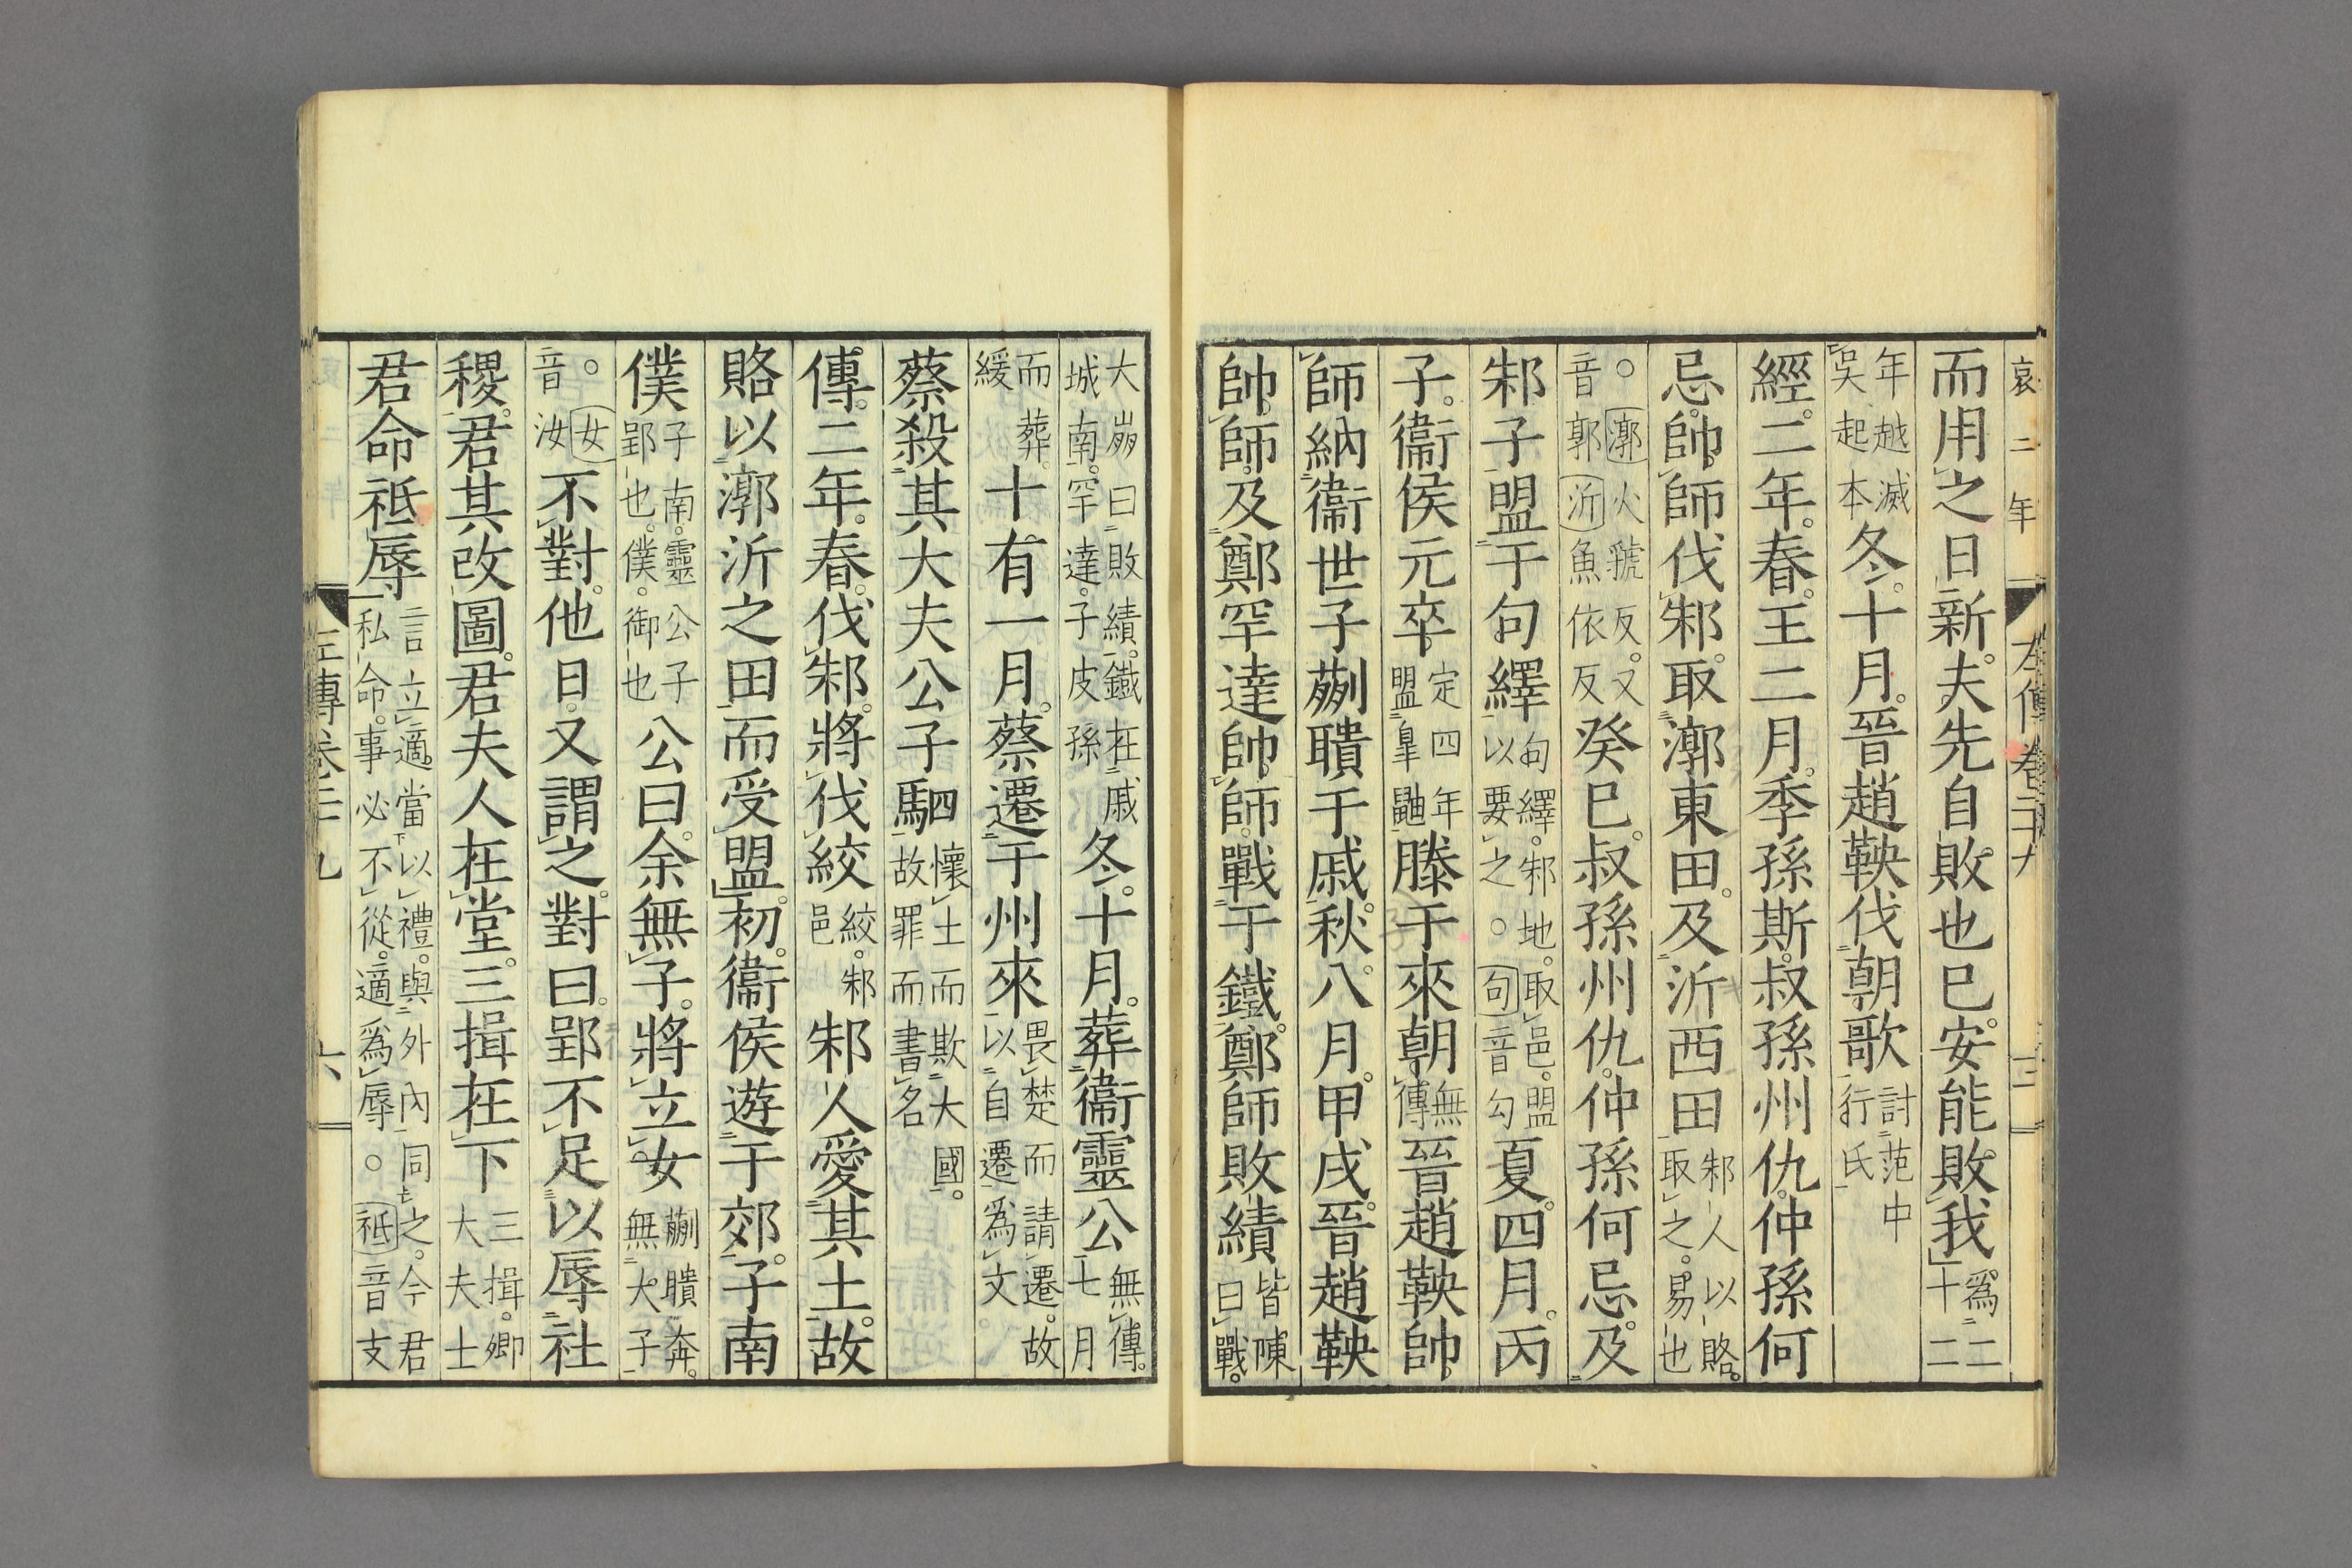 哀二年
左傳卷二十九
而用之日新夫先自敗也已安能敗我爲二十二
年越滅吳起本冬十月晉趙鞅伐朝歌討范中行氏
經二年春王二月季孫斯叔孫州仇仲孫何
忌帥師伐邾取漷東田及沂西田邾人以賂取之易也
○漷火虢反又音郭沂魚依反癸巳叔孫州仇仲孫何忌及
邾子盟于句繹句繹邾地取邑盟以要之○句音勾夏四月丙
子衞侯元卒定四年盟皐鼬滕子來朝無傳晉趙鞅帥
師納衞世子蒯聵于戚秋八月甲戌晉趙鞅
帥師及鄭罕達帥師戰于鐵鄭師敗績皆陳曰戰
大崩曰敗績鐵在戚城南罕達子皮孫冬十月葬衞靈公無傳七月
而葬緩十有一月蔡遷于州來畏楚而請遷故以自遷爲文
蔡殺其大夫公子駟懷土而欺大國故罪而書名
傳二年春伐邾將伐絞絞邾邑邾人愛其土故
賂以漷沂之田而受盟初衞侯遊于郊子南
僕子南靈公子郢也僕御也公曰余無子將立女蒯聵奔無大子
○女音汝不對他日又謂之對曰郢不足以辱社
稷君其改圖君夫人在堂三揖在下三揖卿大夫士
君命祗辱言立適當以禮與外內同之今君私命事必不從適爲辱○祗音支
左傳卷二十九
六